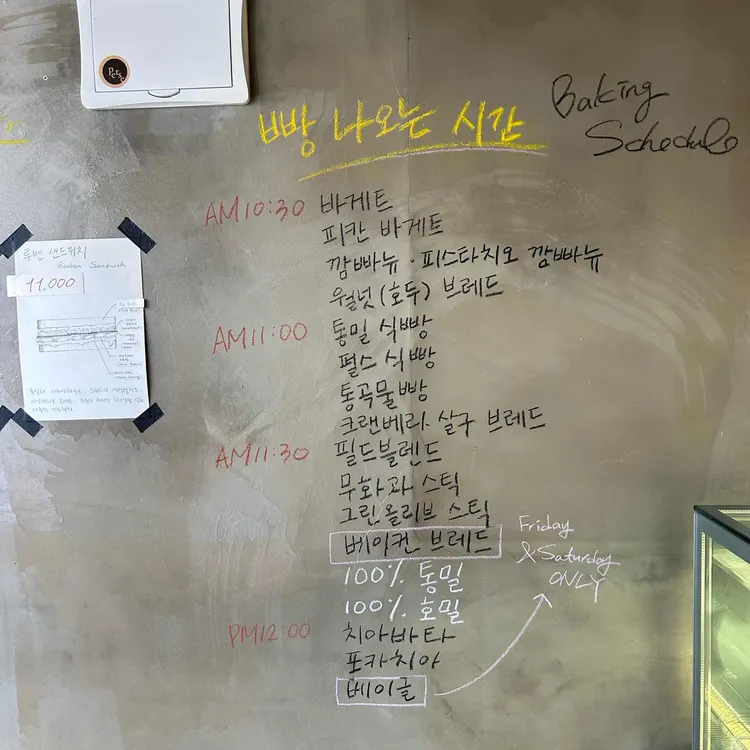 빵 나오는 시간
Baking
Schedule
AM 10:30 바게트
피칸 바게트
깜빠뉴 · 피스타치오 깜빠뉴
월넛 (호두) 브레드
AM 11:00 통밀 식빵
펄스 식빵
통곡물빵
크랜베리 살구 브레드
AM 11:30 필드블렌드
무화과 스틱
그린올리브 스틱
베이컨 브레드
100% 통밀
100% 호밀
PM12:00 치아바타
포카치아
베이글
Friday
& Saturday
ONLY
루벤 샌드위치
Reuben Sandwich
11.000